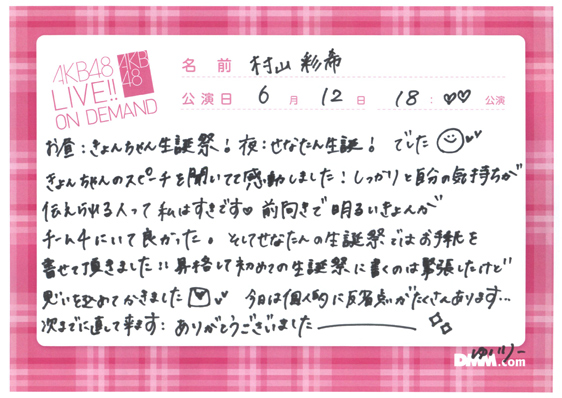 AKB48
LIVE!!
ON DEMAND
AKB
48
名前 村山 彩希
公演日 6月 12日 18:♡♡ 公演
お昼:きょんちゃん生誕祭!夜:せなたん生誕! でした
きょんちゃんのスピーチを聞いてて感動しました!しっかりと自分の気持ちが
伝えられる人って私はすきです♡ 前向きで明るいきょんが
チーム4にいて良かった。そしてせなたんの生誕祭ではお手紙を
書せて頂きました!!昇格して初めての生誕祭に書くのは緊張したけど
思いを込めてかきました 今日は個人的に反省点がたくさんあります...
次までに直して来ます: ありがとうございました
ゆいりー
DMM.com